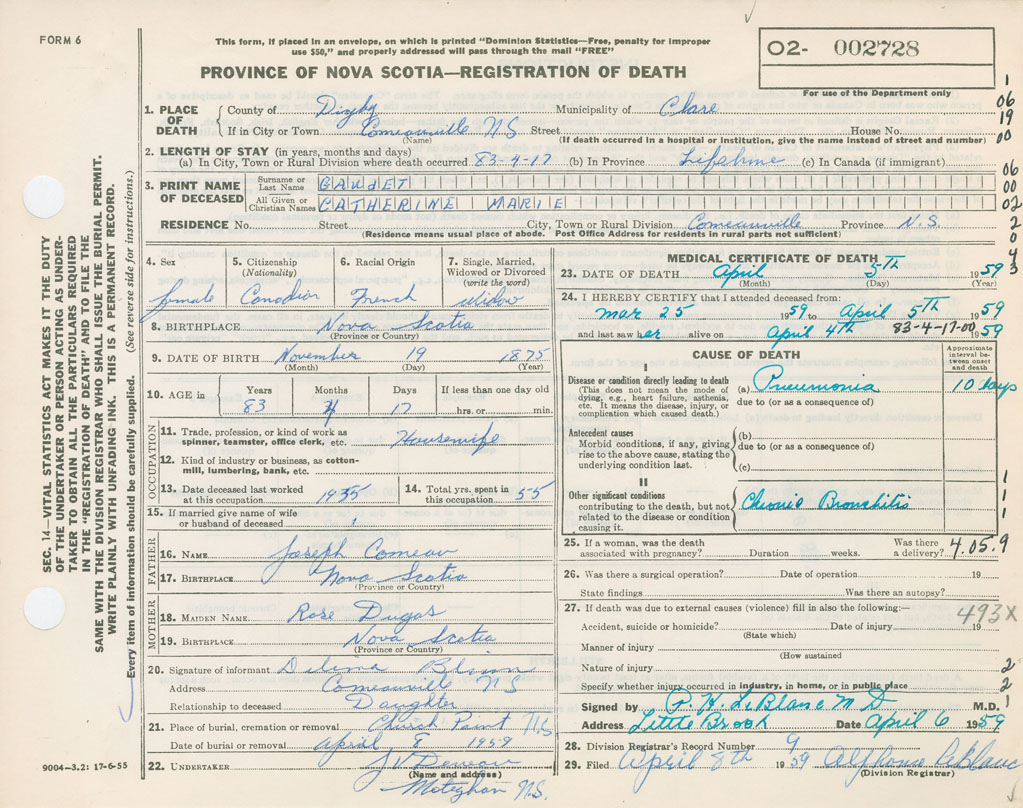 FORM 6
This form, if placed in an envelope, on which is printed "Dominion Statistics—Free, penalty for improper
use $50," and properly addressed will pass through the mail "FREE"
PROVINCE OF NOVA SCOTIA—REGISTRATION OF DEATH
O2- 002728
For use of the Department only
SEC. 14—VITAL STATISTICS ACT MAKES IT THE DUTY
OF THE UNDERTAKER OR PERSON ACTING AS UNDER-
TAKER TO OBTAIN ALL THE PARTICULARS REQUIRED
IN THE "REGISTRATION OF DEATH" AND TO FILE THE
SAME WITH THE DIVISION REGISTRAR WHO SHALL ISSUE THE BURIAL PERMIT.
WRITE PLAINLY WITH UNFADING INK. THIS IS A PERMANENT RECORD.
Every item of information should be carefully supplied. (See reverse side for instructions.)
1. PLACE OF DEATH
County of Digby Municipality of Clare
If in City or Town Comeauville N S Street House No.
(Name) (If death occurred in a hospital or institution, give the name instead of street and number)
2. LENGTH OF STAY (in years, months and days)
(a) In City, Town or Rural Division where death occurred 83-4-17 (b) In Province Lifetime (c) In Canada (if immigrant)
3. PRINT NAME OF DECEASED
Surname or Last Name GAUDET
All Given or Christian Names CATHERINE MARIE
RESIDENCE No. Street City, Town or Rural Division Comeauville Province N.S.
(Residence means usual place of abode. Post Office Address for residents in rural parts not sufficient)
1
06
19
00
06
00
02
2
0
4
3
4. Sex 5. Citizenship (Nationality) 6. Racial Origin 7. Single, Married, Widowed or Divorced (write the word)
female Canadian French Widow
8. BIRTHPLACE Nova Scotia
(Province or Country)
9. DATE OF BIRTH November 19 1875
(Month) (Day) (Year)
10. AGE in Years Months Days If less than one day old
83 4 17 hrs. or min.
OCCUPATION
11. Trade, profession, or kind of work as spinner, teamster, office clerk, etc. Housewife
12. Kind of industry or business, as cotton-mill, lumbering, bank, etc.
13. Date deceased last worked at this occupation 1935 14. Total yrs. spent in this occupation 55
15. If married give name of wife or husband of deceased
FATHER
16. NAME Joseph Comeau
17. BIRTHPLACE Nova Scotia
(Province or Country)
MOTHER
18. MAIDEN NAME Rose Dugas
19. BIRTHPLACE Nova Scotia
(Province or Country)
20. Signature of informant Delima Blinn
Address Comeauville N S
Relationship to deceased Daughter
21. Place of burial, cremation or removal Church Point N.S.
Date of burial or removal April 8 1959
22. UNDERTAKER
(Name and address)
Meteghan N.S.
9004—3.2: 17-6-55
MEDICAL CERTIFICATE OF DEATH
23. DATE OF DEATH April 5TH 1959
(Month) (Day) (Year)
24. I HEREBY CERTIFY that I attended deceased from:
Mar 25 1959 to April 5TH 1959
and last saw her alive on April 4th 83-4-17-00 1959
CAUSE OF DEATH
Approximate interval between onset and death
I
Disease or condition directly leading to death (a) Pneumonia 10 days
(This does not mean the mode of dying, e.g., heart failure, asthenia, etc. It means the disease, injury, or complication which caused death.)
due to (or as a consequence of)
Antecedent causes
Morbid conditions, if any, giving rise to the above cause, stating the underlying condition last.
(b)
due to (or as a consequence of)
(c)
II
Other significant conditions contributing to the death, but not related to the disease or condition causing it.
Chronic Bronchitis
1
1
1
25. If a woman, was the death associated with pregnancy? Duration weeks. Was there a delivery?
4.05.9
26. Was there a surgical operation? Date of operation 19
State findings Was there an autopsy?
27. If death was due to external causes (violence) fill in also the following:—
493X
Accident, suicide or homicide? Date of injury 19
(State which)
Manner of injury
(How sustained
Nature of injury
2
Specify whether injury occurred in industry, in home, or in public place
2
Signed by P. H. LeBlanc M D M.D.
1
Address Little Brook Date April 6 1959
28. Division Registrar's Record Number 9
29. Filed April 8th 1959 Alphonse LeBlanc
(Division Registrar)